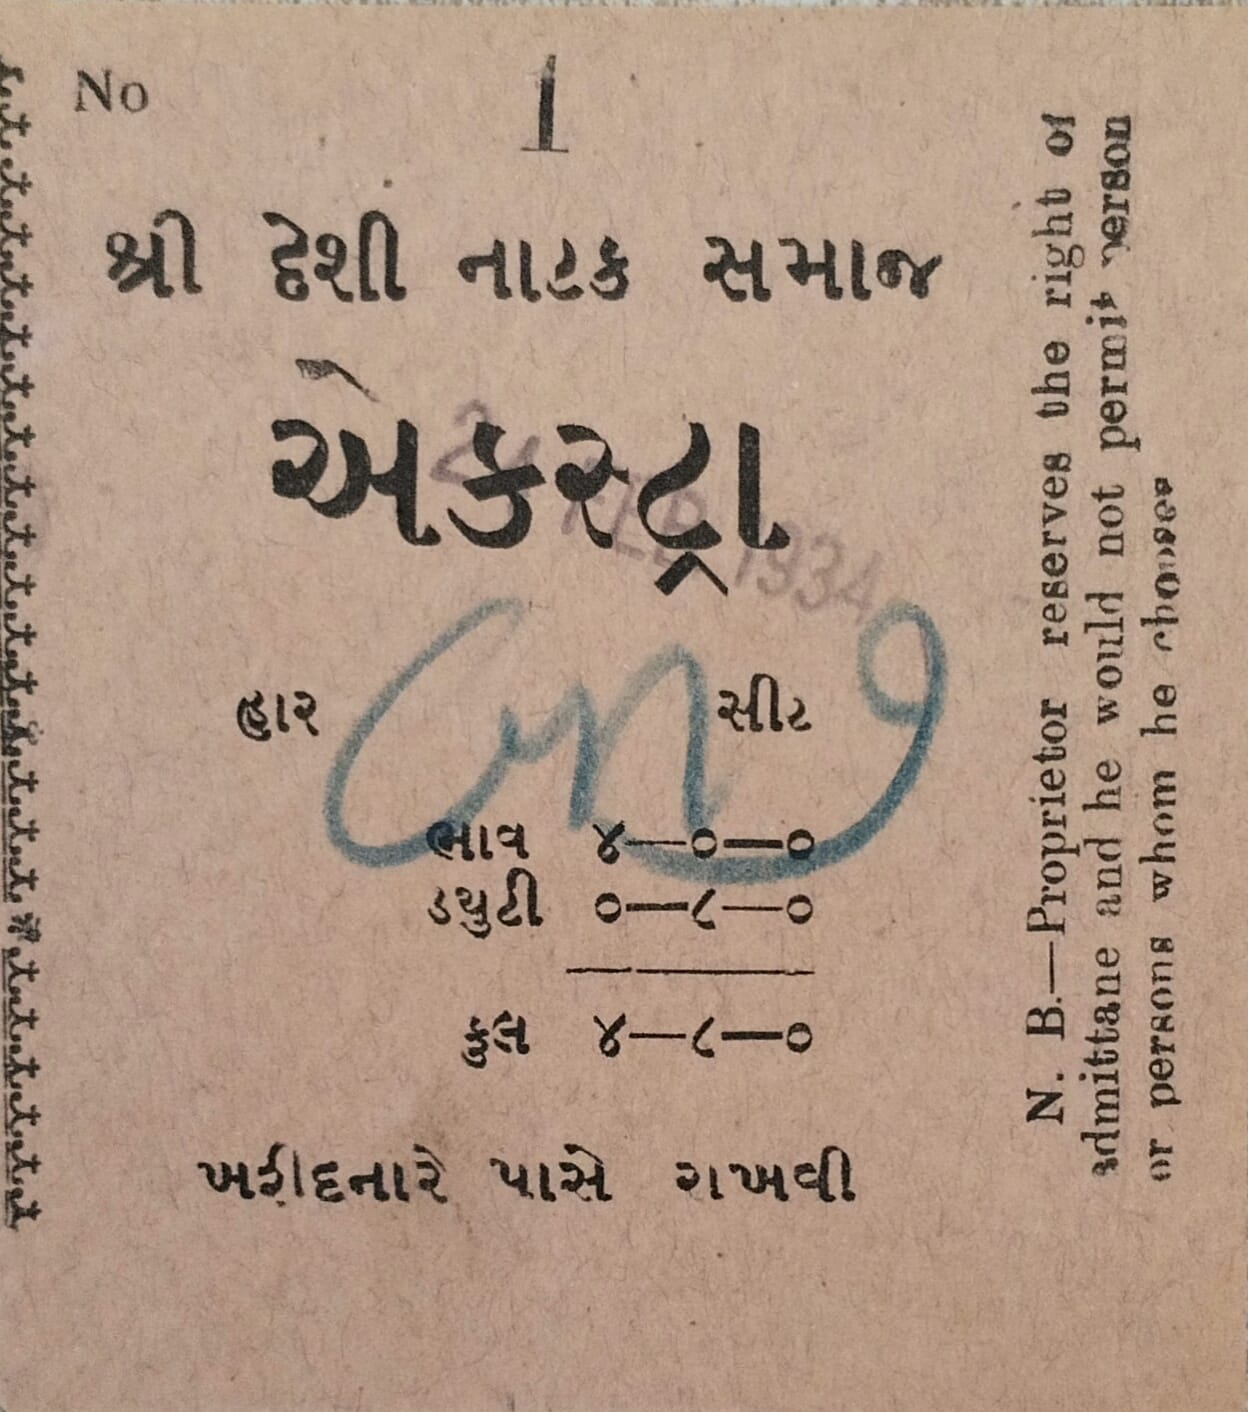 No 1
શ્રી દેશી નાટક સમાજ
એકસ્ટ્રા
FEB 1934
હાર સીટ
ભાવ ૪—૦—૦
ડયુટી ૦—૮—૦
કુલ ૪—૮—૦
ખરીદનારે પાસે રાખવી
N. B.—Proprietor reserves the right of
admittane and he would not permit person
or persons whom he chooses